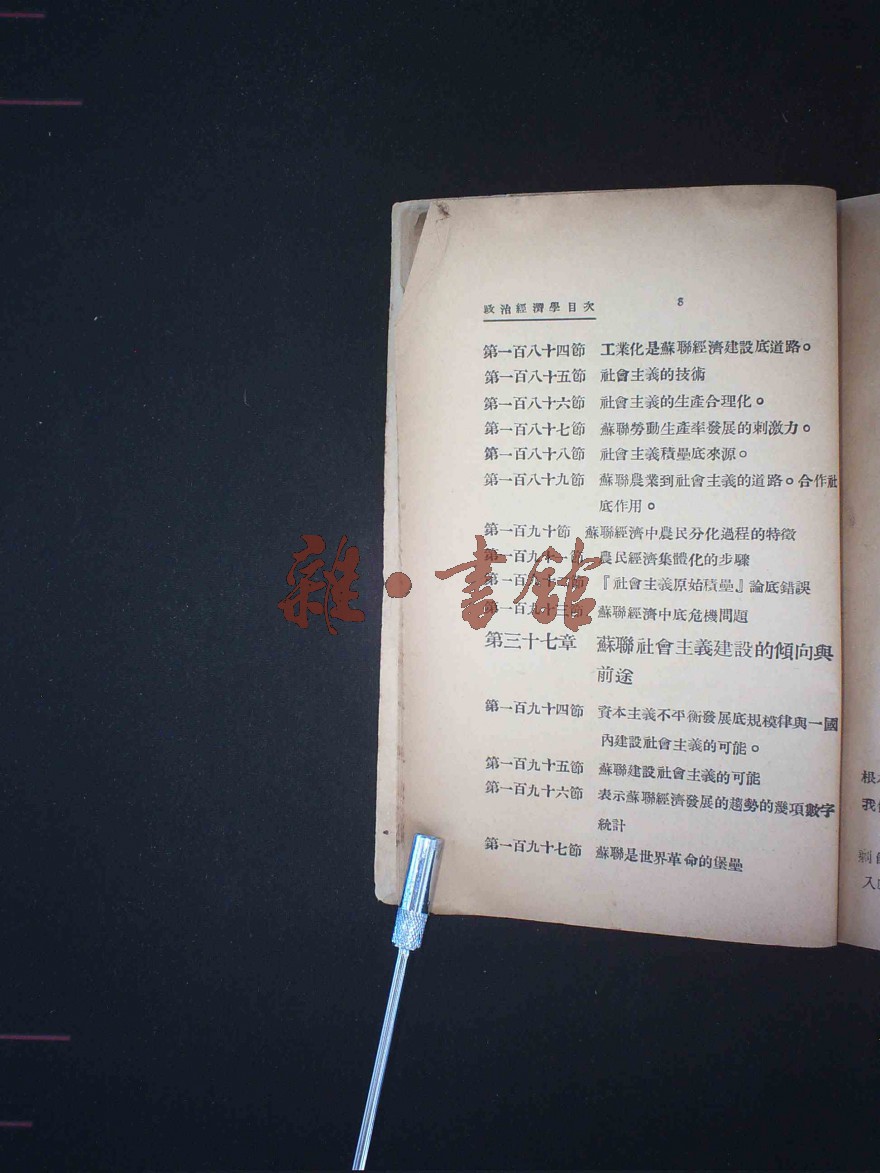 政治經濟學目次 8
第一百八十四節 工業化是蘇聯經濟建設底道路。
第一百八十五節 社會主義的技術
第一百八十六節 社會主義的生產合理化。
第一百八十七節 蘇聯勞動生產率發展的刺激力。
第一百八十八節 社會主義積壘底來源。
第一百八十九節 蘇聯農業到社會主義的道路。合作社
底作用。
第一百九十節 蘇聯經濟中農民分化過程的特徵
第一百九十一節 農民經濟集體化的步驟
第一百九十二節 『社會主義原始積壘』論底錯誤
第一百九十三節 蘇聯經濟中底危機問題
第三十七章 蘇聯社會主義建設的傾向與
前途
第一百九十四節 資本主義不平衡發展底規模律與一國
內建設社會主義的可能。
第一百九十五節 蘇聯建設社會主義的可能
第一百九十六節 表示蘇聯經濟發展的趨勢的幾項數字
統計
第一百九十七節 蘇聯是世界革命的堡壘
雜·書館
根
我
剝
入